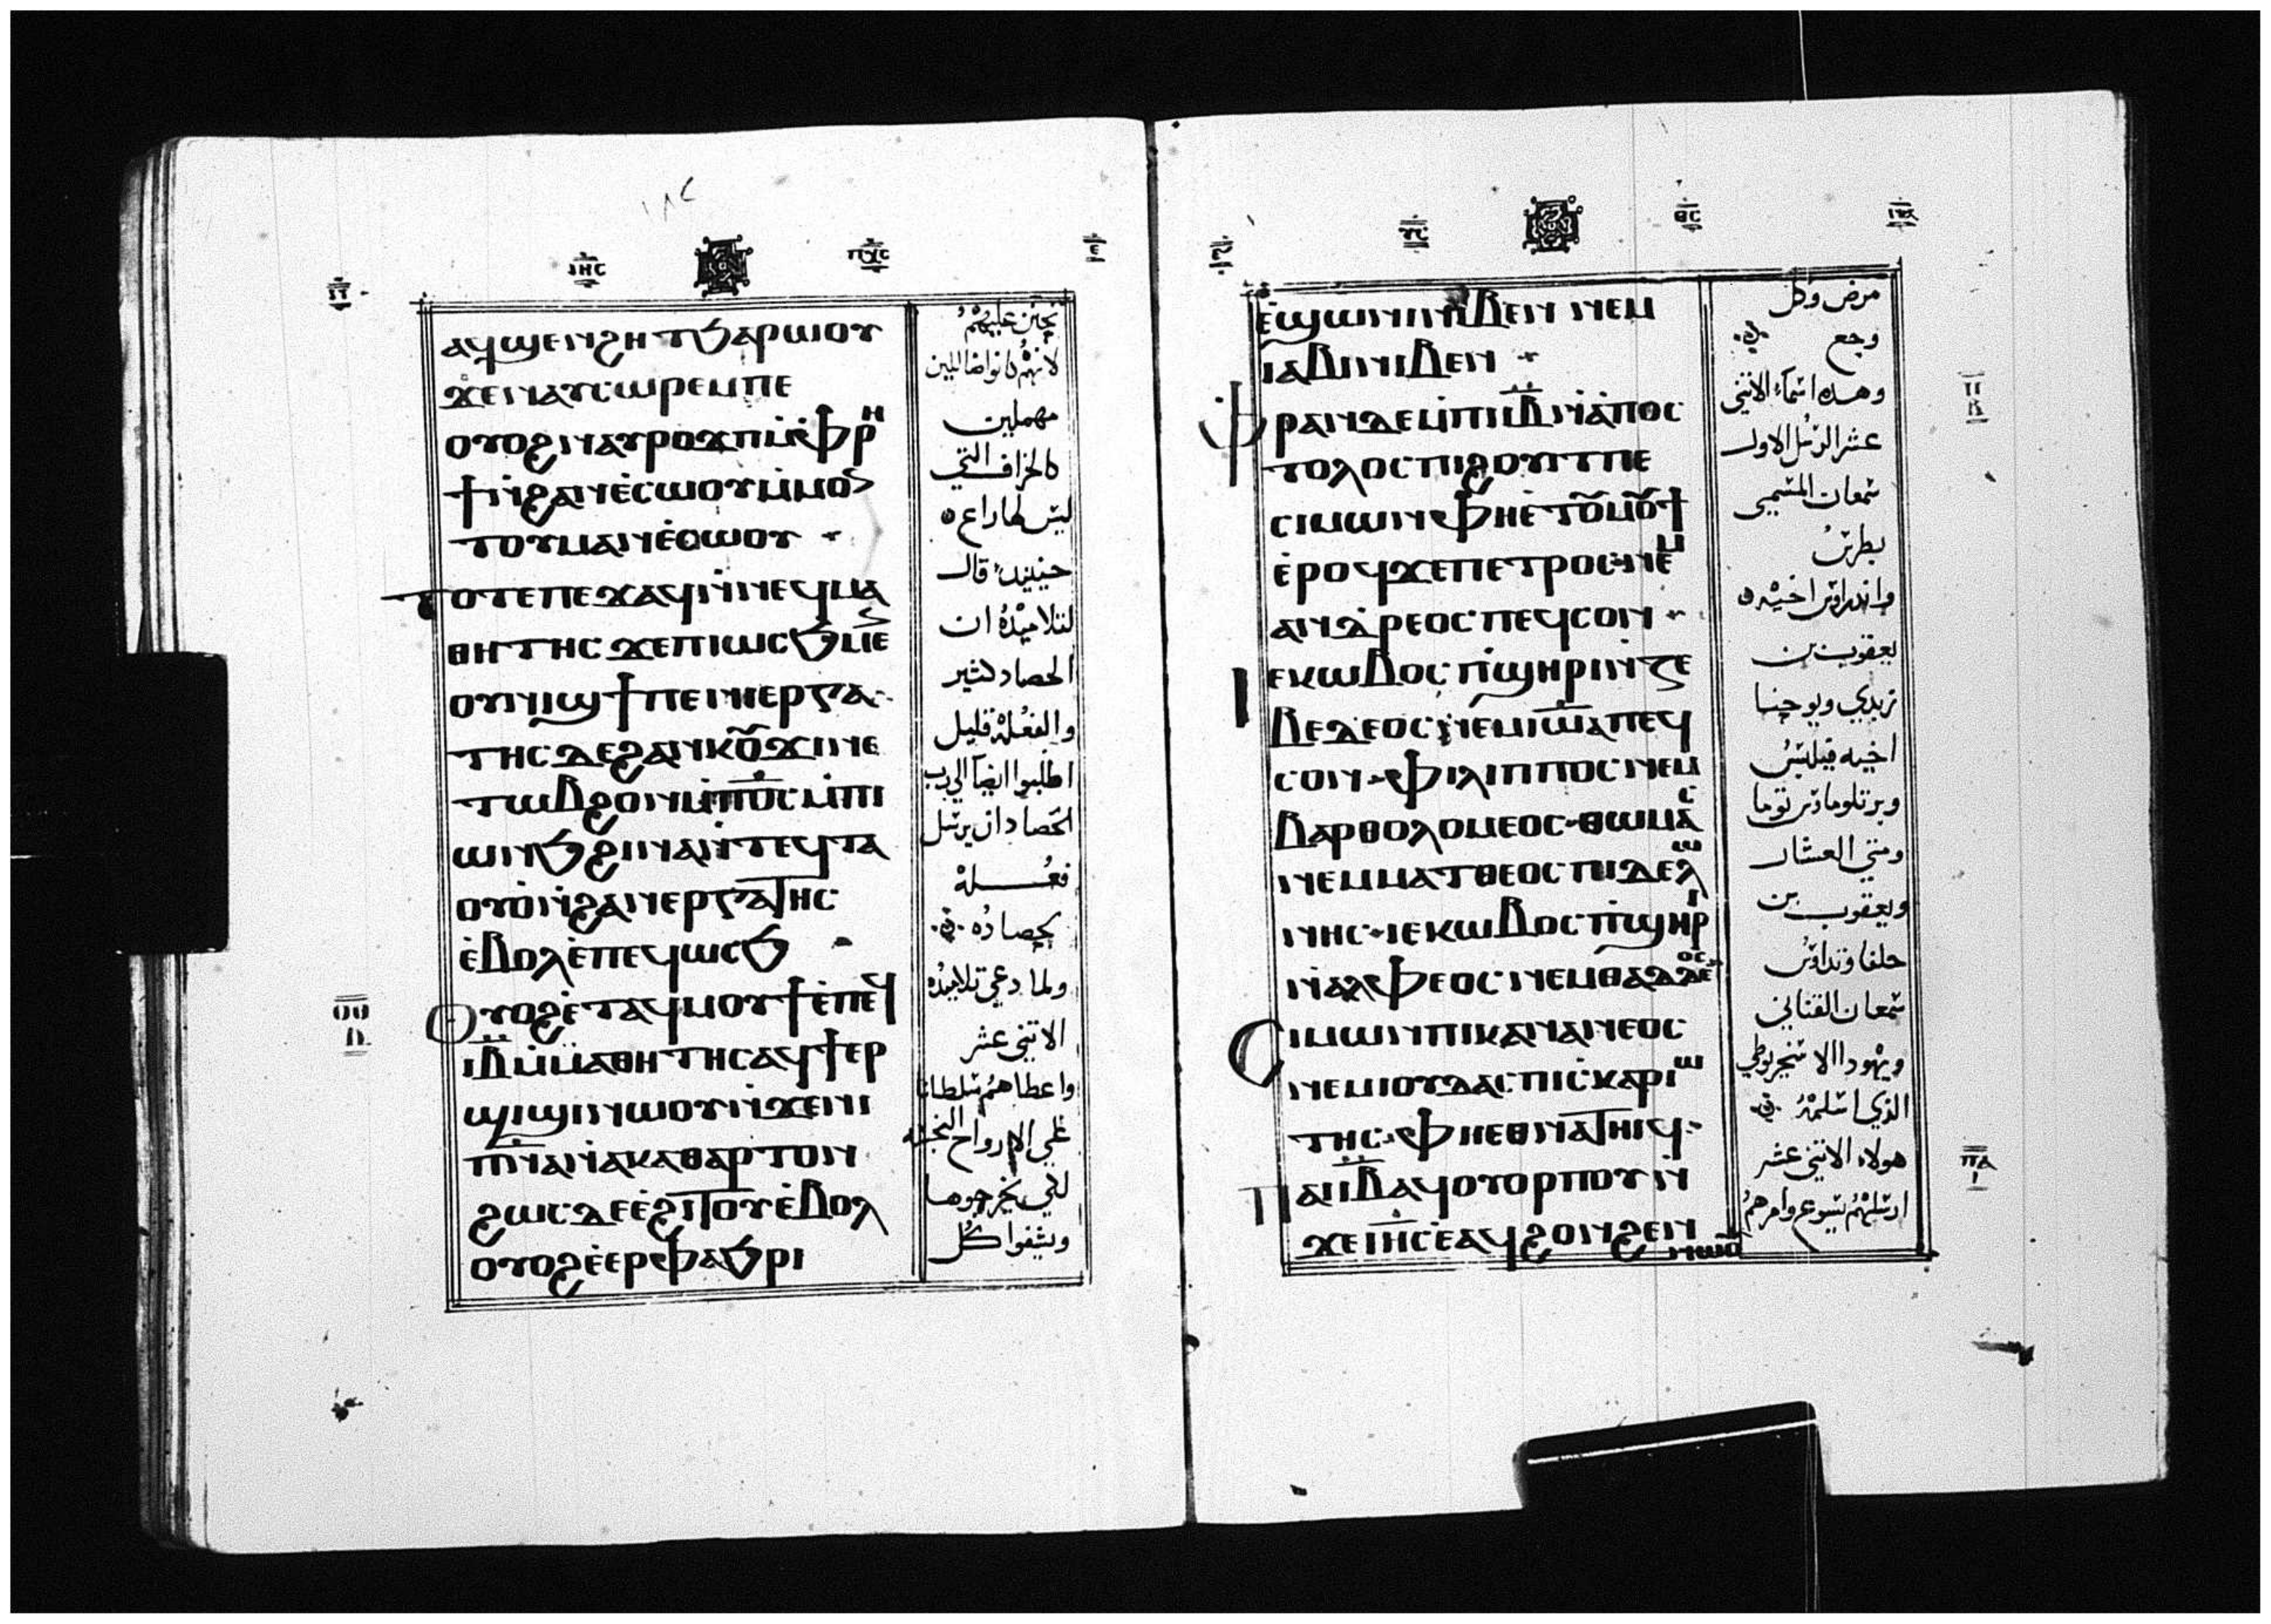 ⲓⲏⲥ ⲡⲭⲥ ⲉ
ⲁϥϣⲉⲛϩⲏⲧϧⲁⲣⲱⲟⲩ
ϫⲉⲛⲁⲩⲥⲱⲣⲉⲙⲡⲉ
ⲟⲩⲟϩⲛⲁⲩⲣⲟϫⲡⲙ̀ⲫⲣⲏ
ϯⲛ̀ϩⲁⲛⲉ̀ⲥⲱⲟⲩⲙ̀ⲙⲟⲛ
ⲧⲟⲩⲙⲁⲛⲉ̀ⲥⲱⲟⲩ
ⲧⲟⲧⲉⲡⲉϫⲁϥⲛ̀ⲛⲉϥⲙⲁ
ⲑⲏⲧⲏⲥ ϫⲉⲡⲓⲱⲥϧⲙⲉⲛ
ⲟⲩⲛⲓϣϯⲡⲉⲛⲓⲉⲣⲅⲁ
ⲧⲏⲥⲇⲉϩⲁⲛⲕⲟⲩϫⲓⲛⲉ
ⲧⲱⲃϩⲟⲩⲛⲙ̀ⲡⲟ̅ⲥ̅ⲙ̀ⲡⲓ
ⲱⲥϧϩⲓⲛⲁⲛ̀ⲧⲉϥⲧⲁ
ⲟⲩⲟ̀ⲛ̀ϩⲁⲛⲉⲣⲅⲁⲧⲏⲥ
ⲉ̀ⲃⲟⲗⲉ̀ⲡⲉϥⲱⲥϧ
ⲟⲩⲟϩⲉ̀ⲧⲁϥⲙⲟⲩϯⲉ̀ⲡⲉϥ
ⲓ̅ⲃ̅ⲙ̀ⲙⲁⲑⲏⲧⲏⲥⲁϥϯⲉⲣ
ϣⲓϣⲓⲛⲱⲟⲩⲛ̀ϫⲉⲛⲓ
ⲡ̅ⲛ̅ⲁ̅ⲛ̀ⲁⲕⲁⲑⲁⲣⲧⲟⲛ
ϩⲱⲥⲇⲉⲉ̀ϩⲓⲧⲟⲩⲉ̀ⲃⲟⲗ
ⲟⲩⲟϩⲉ̀ⲉⲣⲫⲁϧⲣⲓ
تحنن عليهم
لانهم كانوا ضاللين
مهملين
كالخراف التي
ليس لها راع
حينيد قال
لتلاميذه ان
الحصاد كثير
والفعله قليل
اطلبوا ايضا الي رب
الحصاد ان يرسل
فعله
لحصاده
ولما دعي تلاميذه
الاثني عشر
واعطاهم سلطانا
علي الارواح النجسه
لكي يخرجوها
ويشفوا كل
ⲩⲥ ⲑⲥ
ⲉ̀ϣⲱⲛⲓⲛⲓⲃⲉⲛ ⲛⲉⲙ
ⲓⲁⲃⲓⲛⲓⲃⲉⲛ
ⲫⲣⲁⲛⲇⲉⲙ̀ⲡⲓⲓ̅ⲃ̅ⲛ̀ⲁ̀ⲡⲟⲥ
ⲧⲟⲗⲟⲥⲡⲓϩⲟⲩⲓⲧⲡⲉ
ⲥⲓⲙⲱⲛⲫⲏⲉ̀ⲧⲟⲩⲙⲟⲩϯ
ⲉ̀ⲣⲟϥϫⲉⲡⲉⲧⲣⲟⲥⲛⲉⲙ
ⲁⲛⲇⲣⲉⲟⲥⲡⲉϥⲥⲟⲛ
ⲓⲉⲕⲱⲃⲟⲥⲡ̀ϣⲏⲣⲓⲛ̀ⲍⲉ
ⲃⲉⲇⲉⲟⲥⲛⲉⲙⲓⲱ̅ⲁ̅ⲡⲉϥ
ⲥⲟⲛⲫⲓⲗⲓⲡⲡⲟⲥⲛⲉⲙ
ⲃⲁⲣⲑⲟⲗⲟⲙⲉⲟⲥⲑⲱⲙⲁⲥ
ⲛⲉⲙⲙⲁⲧⲑⲉⲟⲥⲡⲓⲧⲉⲗⲱ
ⲛⲏⲥⲓⲉⲕⲱⲃⲟⲥⲡ̀ϣⲏⲣⲓ
ⲛ̀ⲁⲗⲫⲉⲟⲥⲛⲉⲙⲑⲁⲇⲇⲉⲟⲥ
ⲥⲓⲙⲱⲛⲡⲓⲕⲁⲛⲁⲛⲉⲟⲥ
ⲛⲉⲙⲓⲟⲩⲇⲁⲥⲡⲓⲥⲕⲁⲣⲓⲱ
ⲧⲏⲥⲫⲏⲉⲑⲛⲁⲧⲏⲓϥ
ⲡⲁⲓⲓ̅ⲃ̅ⲁϥⲟⲩⲟⲣⲡⲟⲩⲛ̀
ϫⲉⲓⲏ̅ⲥ̅ⲉ̀ⲁϥϩⲟⲛϩⲉⲛ
ⲛⲱⲟⲩ
مرض وكل
وجع
وهده اسماء الاثني
عشر الرسل الاول
سمعان المسمي
بطرس
واندراوس اخيه
يعقوب بن
زبدي ويوحنا
اخيه فيلبس
وبرتلوماوس توما
ومتي العشار
ويعقوب بن
حلفا وتداوس
سمعان القناني
ويهودا الاسخريوطي
الذي اسلمه
هولاء الاثني عشر
ارسلهم يسوع وامرهم